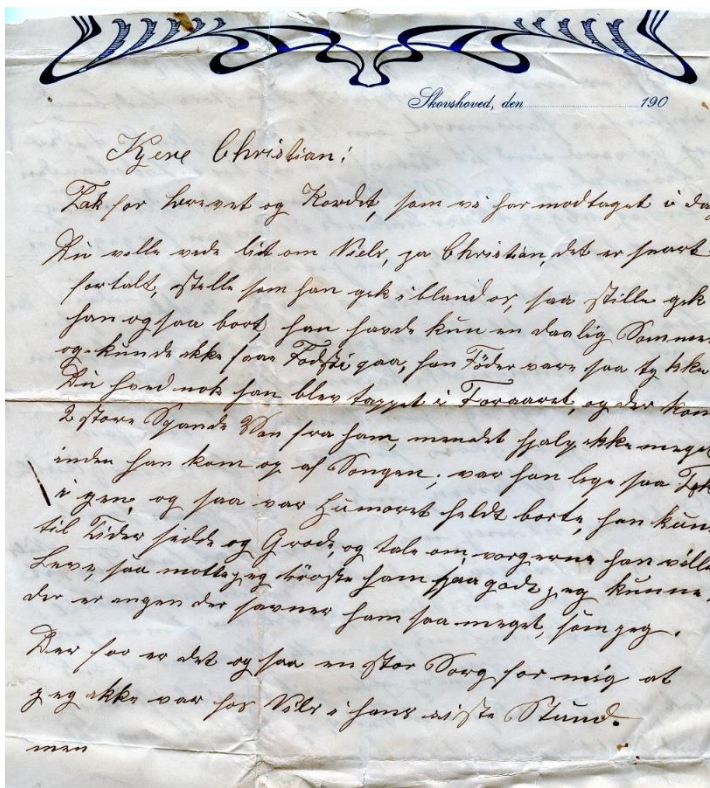 Skovshoved, den 190
Kjere Christian!
Tak for brevet og Kordet, som vi har modtaget i dag
Du velle vede lidt om Niels, ja Christian, det er snart
fortalt, stelle som han gek ibland os, saa stille gek
han ogsaa bort, han havde kun en daarlig Sommer
og kunde ikke faae Födtöi paa, han Föder vare saa tykke
Du hved nok han blev tappet i Foraaret, og der kom
2 store Spande Van fra ham, men det hjalp ikke meget
inden han kom op af Sengen, var han lege saa Tyk
i gen, og saa var Humoret heldt borte, han kun
til Tider sedde og Grode, og tale om, han ville
Leve, saa motte jeg tröste ham saa godt jeg kunne,
der er engen der savner ham saa meget, som jeg.
Der for er det og saa en stor Sorg for mig at
jeg ikke var hos Nels i hans siste Stund.
men